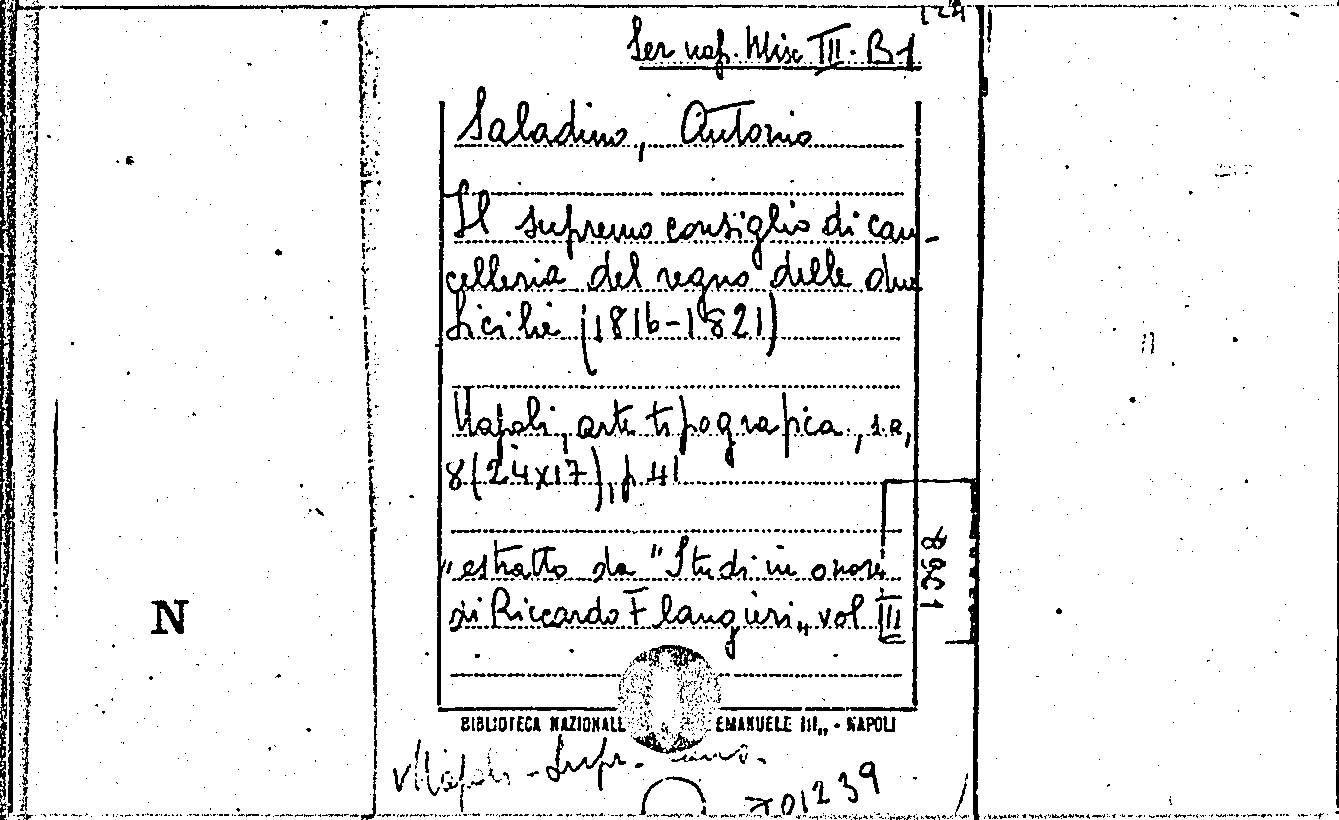 Ser nap. Misc III. B1
Saladino, Antonio
Il supremo consiglio di can-
celleria del regno delle due
Sicilie (1816-1821)
Napoli, arte tipografica, s.a,
8(24x17), p 41
"estratto da "Studi in onore
di Riccardo Filangieri„ vol III
N
BIBLIOTECA NAZIONALE EMANUELE III„ - NAPOLI
Napoli - Supr.
701239